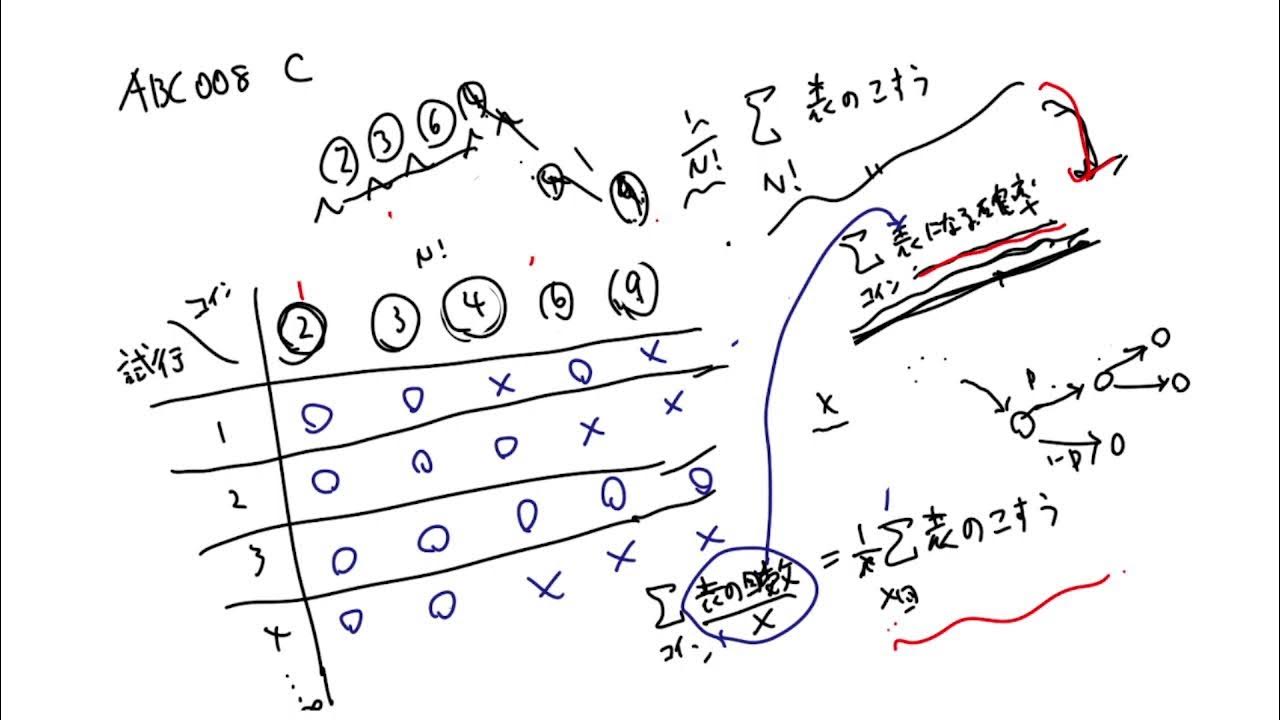 ABC008 C
2 3 6 4
4 9
1/N! Σ 表のこすう
N!
N!
Σ 表になる確率
コイン
コイン 2 3 4 6 9
試行
1 O O X O X
2 O O O X X
3 O O O O O
4 O O X X X
X
P
1-P
Σ 表の回数/X = 1/X Σ 表のこすう
コイン X回